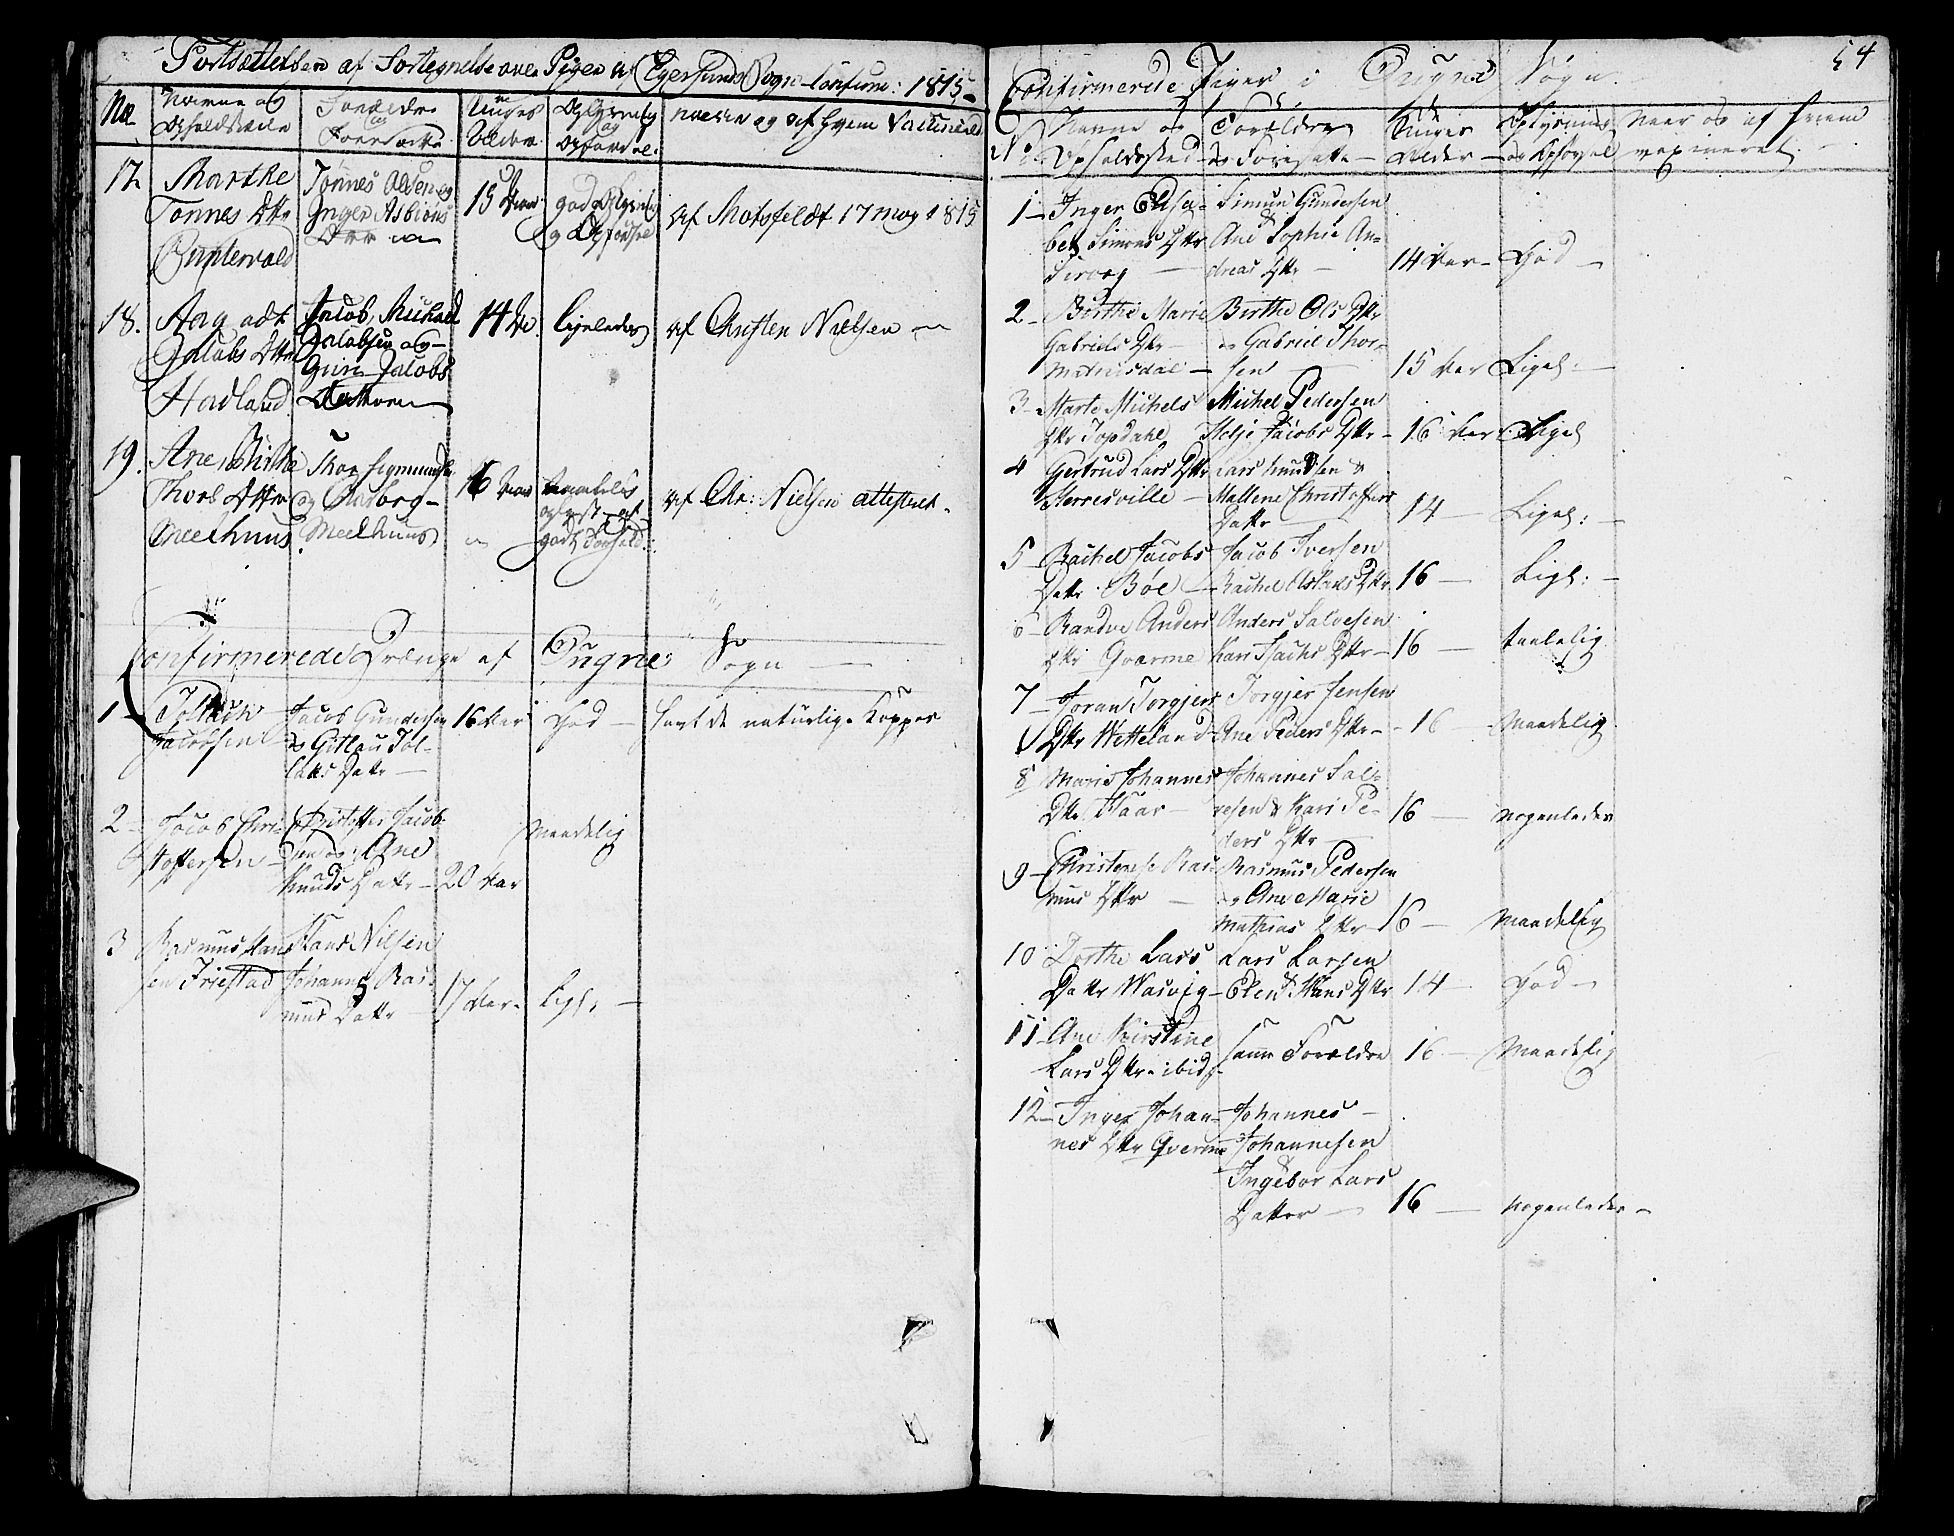 Fortsættelsen af Fortegnelse over Piger af Egersunds Sogn Confirm: 1815
No
Navne og Opholdsstæde
Forældre og Foresadte
Unges Alder
Oplysning og Opførsel
naar og af hvem Vaccineret
17.
Marthe Tønnes Dttr Puntervold
Tønnes Olsen og Inger Asbiøns Dttr
15 Aar
god Oplysning og Opførsel
af Motzfeldt 17 may 1815
18.
Jacobs Dttr Hadland
Jacob Michael Jacobsen og Guri Jacobs Datter
14 Do
ligeledes
af Christen Nielsen
19.
Ane Birthe Thors Dttr Meelhuus
Thor Sigmunds og Aasborg Meelhuus
16 Aar
maadelig oplyst af godt Forhold
af Chr: Nielsen attesteret
Confirmerede Drænge af Ougne Sogn
1
Tollach Jacobsen
Jacob Gundersen & Gitlau Tollaks Datr
16 Aar
God
havt de naturlige Kopper
2
Jacob Christoffersen
Christoffer Jacobsen og Ane Knuds Datr
20 Aar
Maadelig
3
Rasmus Hansen Friestad
Hans Nilsen Johanne Rasmus Datr
17 Aar
Ligel.
54
Confirmerede Piger i Ougne Sogn
No
Navne og Opholdssted
Forældre og Foresatte
Unges Alder
Oplysning og Opførsel
Naar og af hvem vaxineret
1
Inger Elisabet Simons Dttr Sirvog
Simon Gundersen & Ane Sophie Andreas Dttr
14 Aar
God
2
Birthe Marie Gabriels Dttr
Birthe Ols Dttr & Gabriel Thorsen
15 Aar
Ligel:
3
Marte Michels Dttr Topdahl
Michel Pedersen Helje Jacobs Dttr
16 Aar
Ligel
4
Gertrud Lars Dttr Herresville
Lars Knudsen & Mallene Christoffers Dattr
14
Ligel:
5
Rachel Jacobs Datr Bøe
Jacob Iversen Rachel Aslaks Dttr
16
Ligl:
6
Randve Anders Dttr Qvarme
Anders Salvesen Kari Isachs Dttr
16
taalelig
7
Joran Torgjers Dttr Wetteland
Torgjer Jensen Ane Peders Dttr
16
Maadelig
8
Maris Johannes Dttr Haar
Johannes Salvesen & Kari Peders Dttr
16
nogenledes
9
Christense Rasmus Dttr
Rasmus Pedersen & Ane Marie Mathias Dttr
16
Maadelig
10
Dorthe Lars Dattr Wasvig
Lars Larsen Elen Hans Dttr
14
God
11
Ane Kirstine Lars Dttr ibid
samme Forældre
16
Maadelig
12
Inger Johannes Dttr Qverme
Johannes Johannesen Ingebor Lars Datter
16
nogenledes